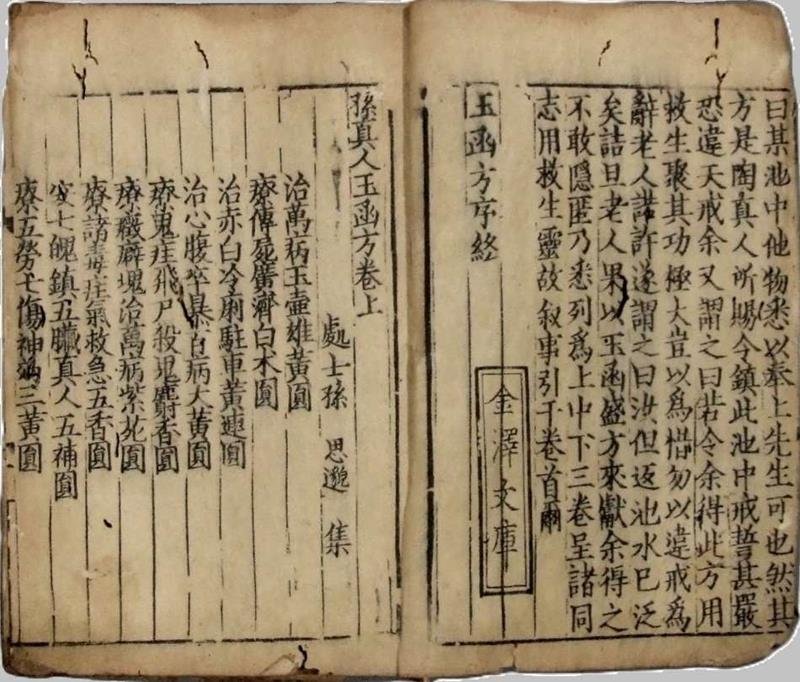 曰某池中他物悉以奉上先生可也然其
方是陶真人所賜令鎮此池中戒誓甚嚴
恐違天戒余又謂之曰若令余得此方用
救生聚其功極大豈以為惜勿以違戒為
辭老人諾許遂謂之曰汝但返池水已泛
矣詰旦老人果以玉函盛方來獻余得之
不敢隱匿乃悉列為上中下三卷呈諸同
志用救生靈故叙事引于卷首爾
玉函方序終
金澤文庫
孫真人玉函方卷上
處士孫 思邈 集
治萬病玉壺雄黃圓
療傳屍廣濟白朮圓
治赤白冷痢駐車黃連圓
治心腹卒暴百病大黃圓
療鬼疰飛尸殺鬼麝香圓
療癥癖塊治萬病紫菀圓
療諸毒疰氣救急五香圓
安七魄鎮五臟真人五補圓
療五勞七傷神 三黃圓